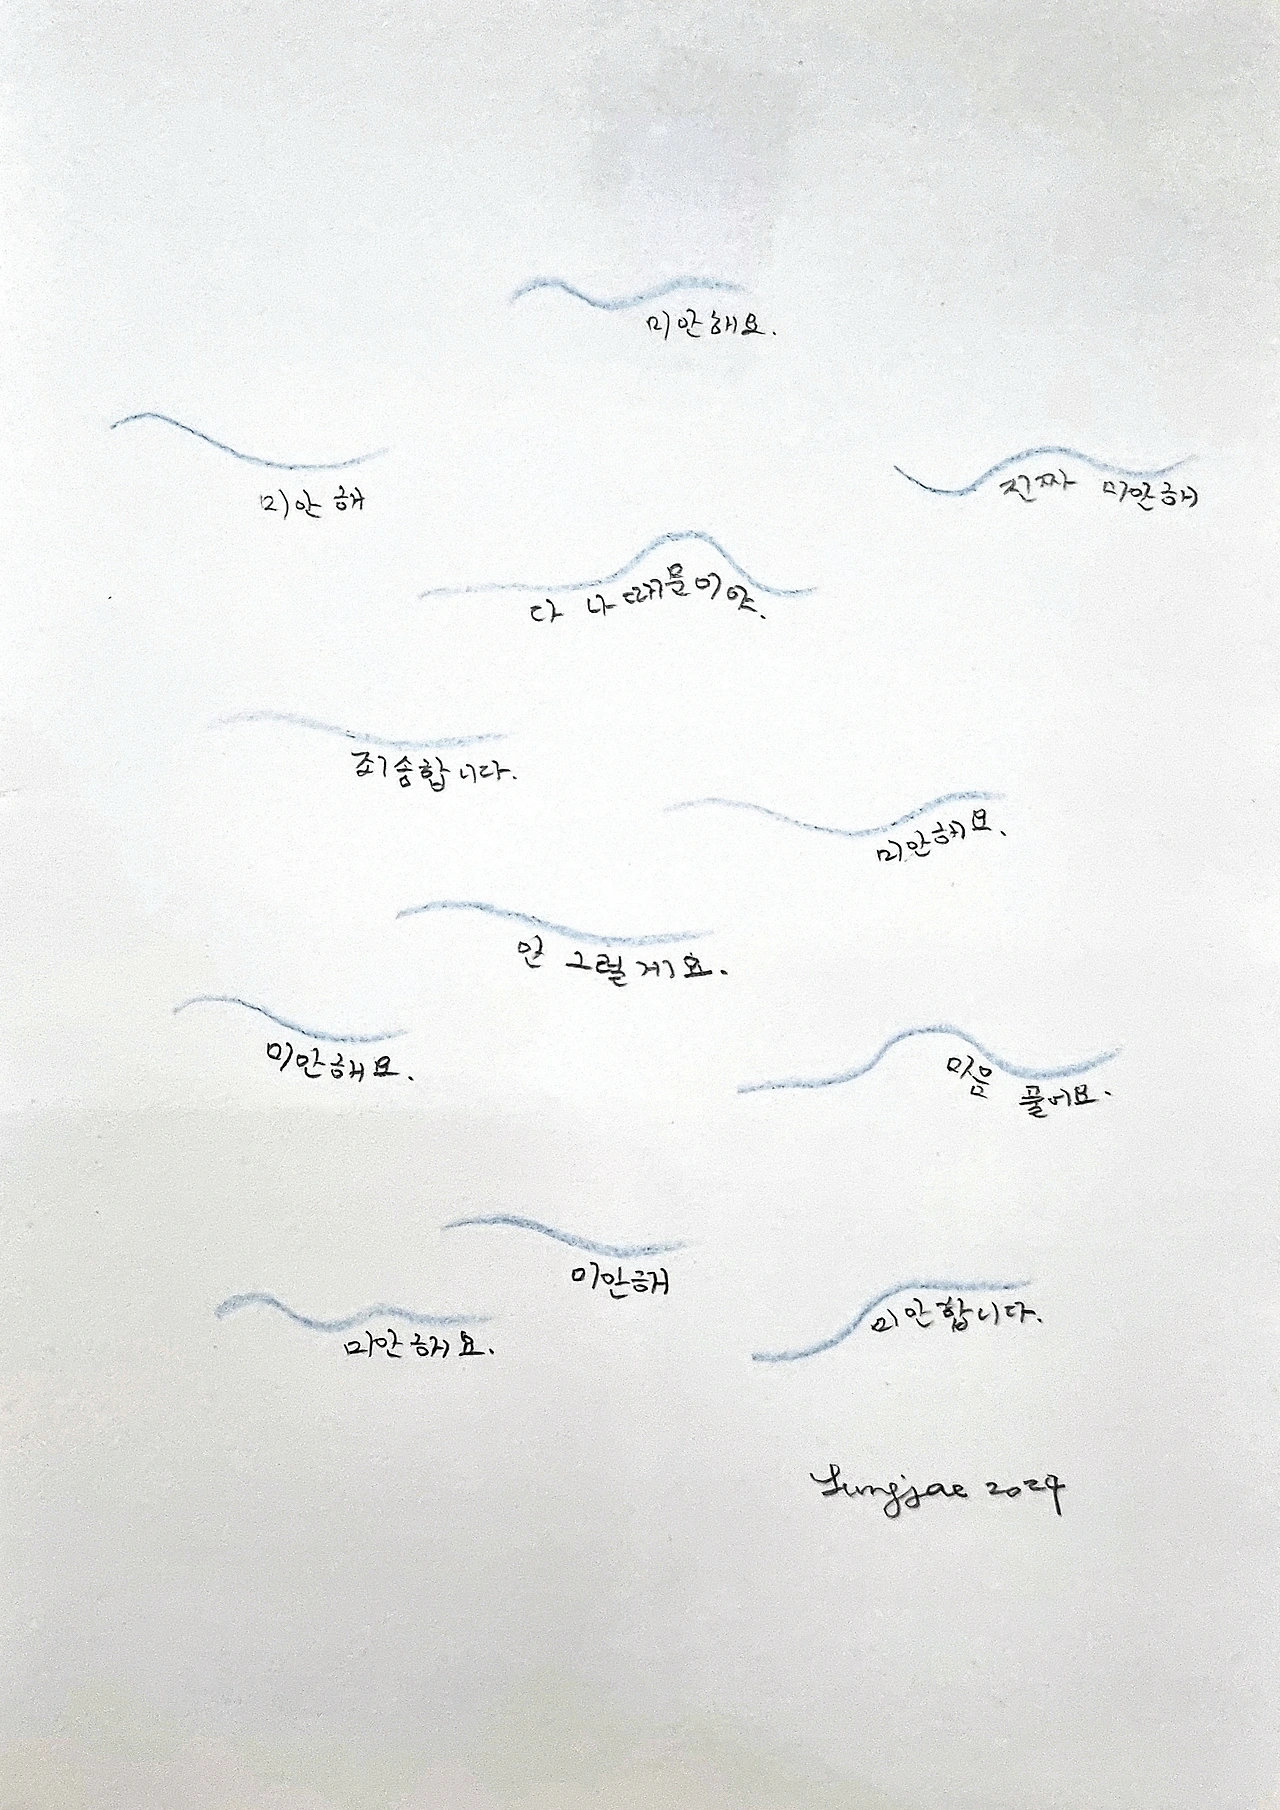 미안해요.
미안해
진짜 미안해
다 나 때문이야.
죄송합니다.
미안해요.
안 그럴게요.
미안해요.
마음 풀어요.
미안해
미안해요.
미안합니다.
Sungjae 2024